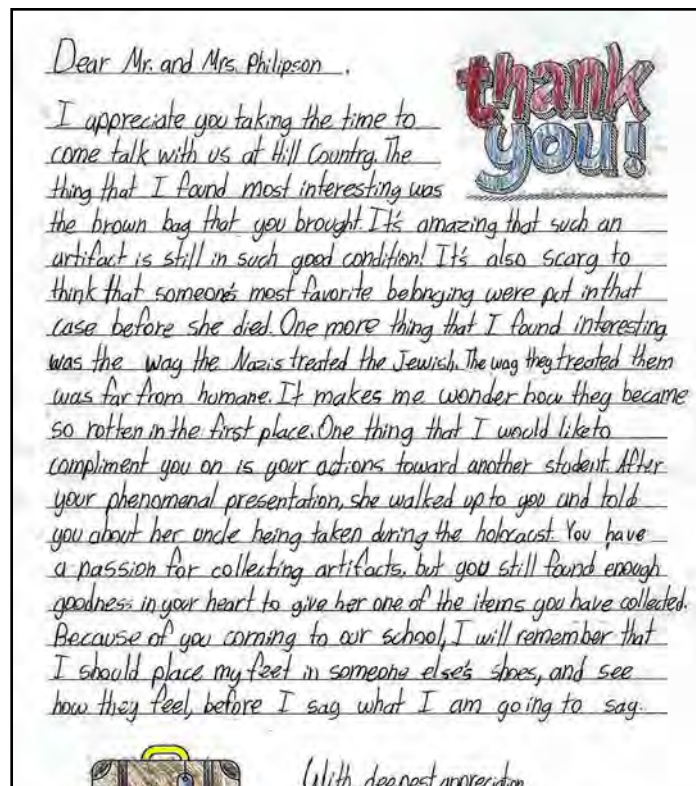 Dear Mr. and Mrs. Philipson ,
thank
you!
I appreciate you taking the time to
come talk with us at Hill Country. The
thing that I found most interesting was
the brown bag that you brought. It's amazing that such an
artifact is still in such good condition! It's also scary to
think that someone's most favorite belonging were put in that
case before she died. One more thing that I found interesting
was the way the Nazis treated the Jewish. The way they treated them
was far from humane. It makes me wonder how they became
so rotten in the first place. One thing that I would like to
compliment you on is your actions toward another student. After
your phenomenal presentation, she walked up to you and told
you about her uncle being taken during the holocaust. You have
a passion for collecting artifacts, but you still found enough
goodness in your heart to give her one of the items you have collected.
Because of you coming to our school, I will remember that
I should place my feet in someone else's shoes, and see
how they feel, before I say what I am going to say.
With deepest appreciation